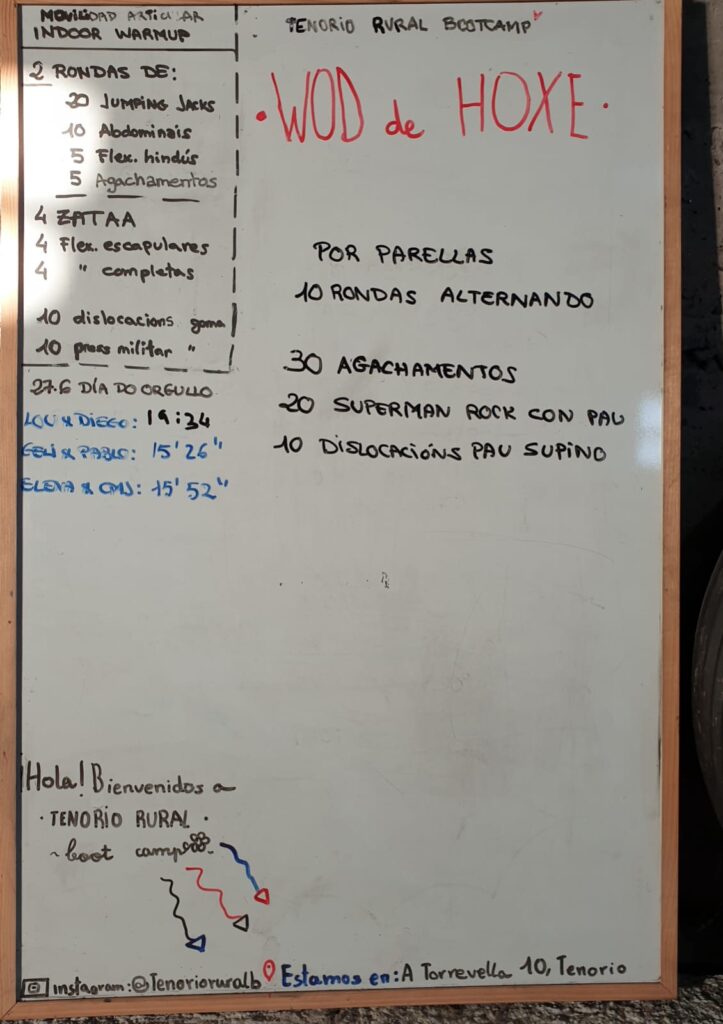 MOVILIDAD ARTICULAR
INDOOR WARMUP
2 RONDAS DE:
20 JUMPING JACKS
10 Abdominais
5 Flex. hindús
5 Agachamentos
4 ZATAA
4 Flex. escapulares
4 " completas
10 dislocacions goma
10 press militar "
27.6 DÍA DO ORGULLO
LOU & DIEGO: 19:34
& PABLO: 15'26"
ELENA & 15'52"
TENORIO RURAL BOOTCAMP
· WOD de HOXE ·
POR PARELLAS
10 RONDAS ALTERNANDO
30 AGACHAMENTOS
20 SUPERMAN ROCK CON PAU
10 DISLOCACIÓNS PAU SUPINO
Hola! Bienvenidos a
· TENORIO RURAL ·
~ boot camp
instagram: @Tenorioruralb
Estamos en: A Torrevella 10, Tenorio